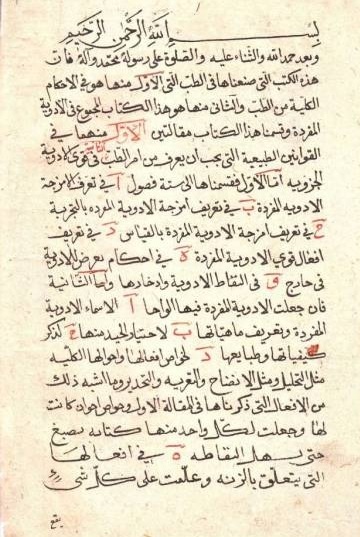 بسم الله الرحمن الرحيم
وبعد حمد الله والثناء عليه والصلوة على رسوله محمد وآله فان
هذه الكتب التى صنعناها فى الطب التى الاول منها هو فى الاحكام
الكلية من الطب والثانى منها هو هذا الكتاب المجموع فى الادوية
المفردة وقسمنا هذا الكتاب مقالتين الاولى منهما فى
القوانين الطبيعية التى يجب ان يعرف من امر الطب فى قوى الادوية
الثانية
الجزويه اما الاول فقسمناها الى ستة فصول آ فى تعرف امزجة
الادويه المفردة ب فى تعريف امزجة الادوية المفرده بالتجربة
ج فى تعريف امزجة الادوية المفردة بالقياس د فى تعريف
افعال قوى الادوية المفردة ه فى احكام يعرض الادوية
فى خارج و فى التقاط الادوية وادخارها واما الثانية
فان جعلت الادوية المفردة فيها الواحا آ الاسماء الادوية
المفردة وتعريف ماهياتها ب لاختيار الجيد منها ج لذكر
كيفياتها وطبايعها د لخواص افعالها واحوالها الكليه
مثل التحليل ومثل الانضاج والتغريه والتخدير وما اشبه ذلك
من الافعال التى ذكرناها فى المقالة الاولى وخواص اخوان كانت
لها وجعلت لكل واحد منها كتابه بصبغ
حتى يسهل التقاطه ه فى افعالها
التى يتعلق بالزينه وعلمت على كل شى
يقع